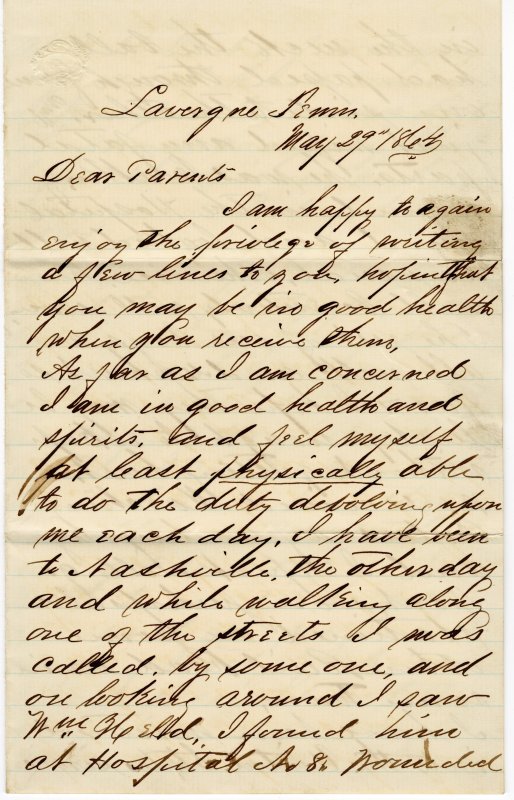 Lavergne Tenn.
May 29" 1864
Dear Parents
I am happy to again
enjoy the privlege of writing
a few lines to you, hoping that
you may be in good health
when you receive them,
As far as I am concerned
I am in good health and
spirits, and feel myself
at least physically able
to do the duty devolving upon
me each day, I have been
to Nashville, the other day
and while walking along
one of the streets I was
called, by some one, and
on looking around I saw
Wm Held, I found him
at Hospital No 8, Wounded